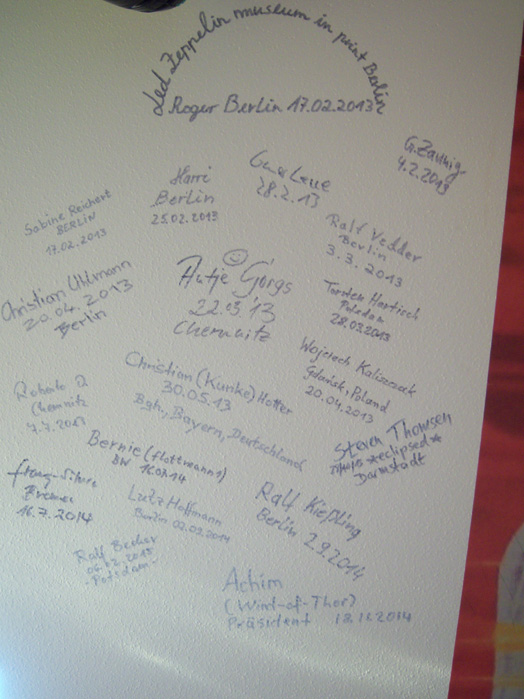 Led Zeppelin museum in print Berlin
Roger Berlin 17.02.2013
G. Zaunig
4.2.2013
28.2.13
Harri
Berlin
25.02.2013
Sabine Reichert
BERLIN
17.02.2013
Ralf Vedder
Berlin
3.3.2013
Antje Görgs
22.03.'13
Chemnitz
Torsten Hartisch
Potsdam
28.03.2013
Christian Uhlmann
20.04.2013
Berlin
Wojciech
Gdańsk, Poland
20.04.2013
Christian (Kunke) Hotter
30.05.13
Bgh., Bayern, Deutschland
Roberto
Chemnitz
Steven Thomsen
*eclipsed*
Darmstadt
Bernie (flottmann1)
Bremen
16.7.2014
Lutz Hoffmann
Berlin 02.09.2014
Ralf Kießling
Berlin 2.9.2014
Ralf Becker
-Potsdam-
Achim
(Wind-of-Thor)
Präsident